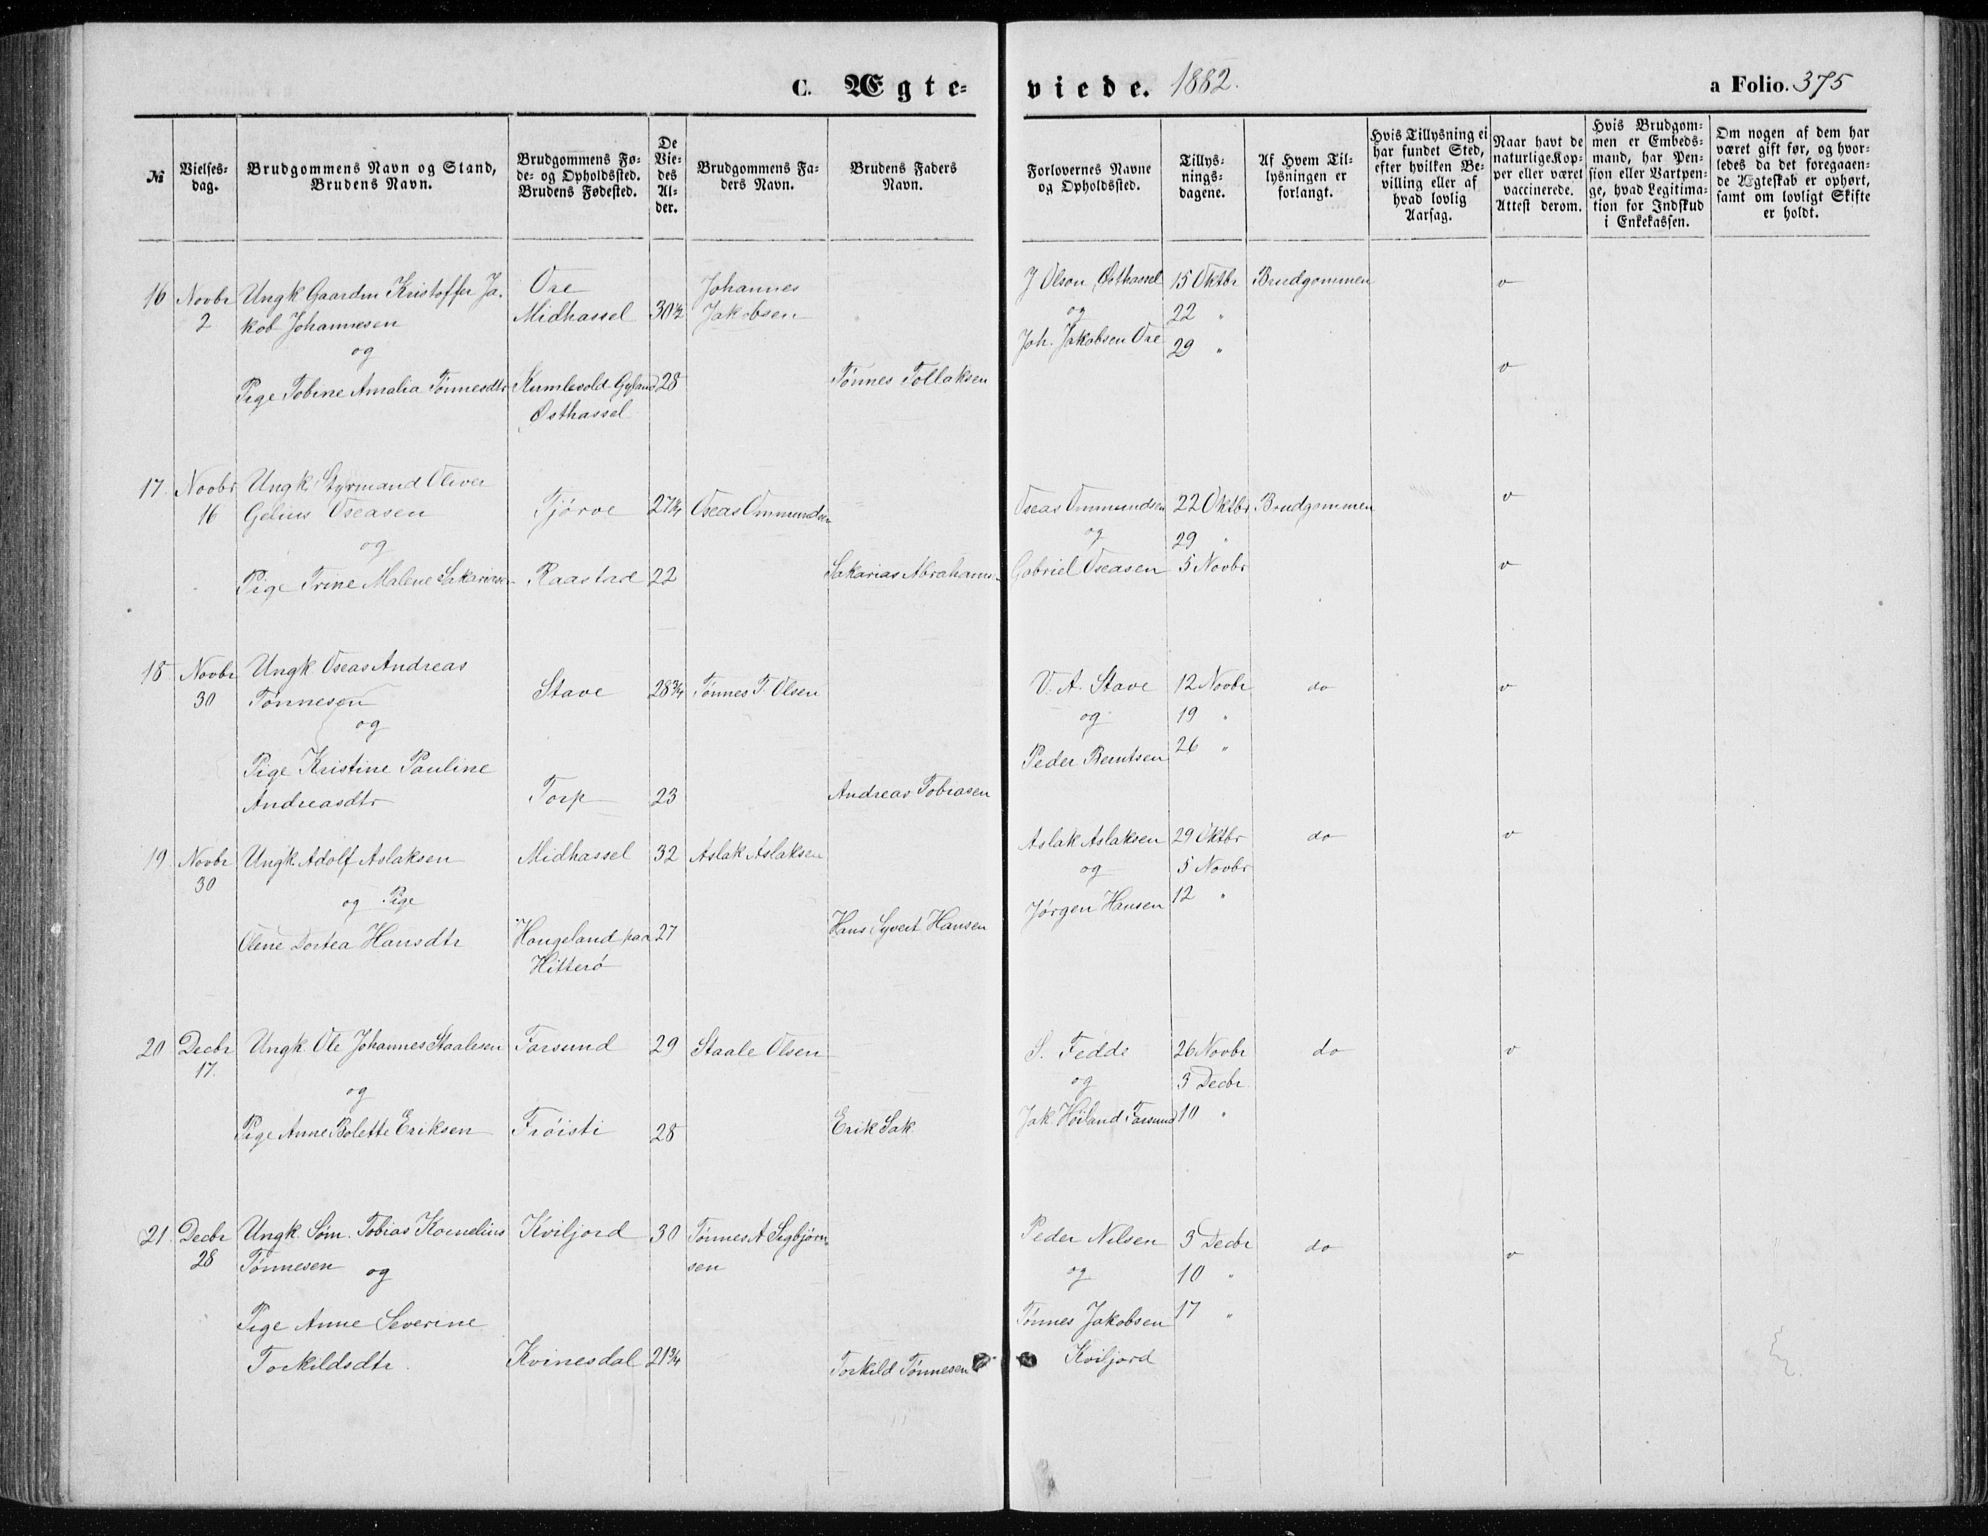 C. Ægte-
viede. 1882.
a Folio. 375
№
Vielses-
dag.
Brudgommens Navn og Stand,
Brudens Navn.
Brudgommens Fø-
de- og Opholdssted.
Brudens Fødested.
De
Vie-
des
Al-
der.
Brudgommens Fa-
ders Navn.
Brudens Faders
Navn.
Forlovernes Navne
og Opholdssted.
Tillys-
nings-
dagene.
Af Hvem Til-
lysningen er
forlangt.
Hvis Tillysning ei
har fundet Sted,
efter hvilken Be-
villing eller af
hvad lovlig
Aarsag.
Naar havt de
naturlige Kop-
per eller været
vaccinerede.
Attest derom.
Hvis Brudgom-
men er Embeds-
mand, har Pen-
sion eller Vartpen-
ge, hvad Legitima-
tion for Indskud
i Enkekassen.
Om nogen af dem har
været gift før, og hvor-
ledes da det foregaaen-
de Ægteskab er ophørt,
samt om lovligt Skifte
er holdt.
16 Novbr Ungk. Gaardm Kristoffer Ja- Ore Johannes J Olson Østhassel 15 Oktbr Brudgommen v
2 kob Johannesen Midhassel 30½ Jakobsen og 22 "
og Joh. Jakobsen Ore 29 "
Pige Tobine Amalia Tønnesdtr Gyland 28 Tønnes Tollaksen v
Østhassel
17 Novbr Ungk. Styrmand Oliver
16 Gelius Oseasen Tjørve 27¾ Oseas Ommundsen Oseas Ommundsen 22 Oktbr Brudgommen v
og og 29 "
Pige Trine Malene Raastad 22 Sakarias Abrahams. Gabriel Oseasen 5 Novbr v
18 Novbr Ungk. Oseas Andreas
30 Tønnesen Stave 28¾ Tønnes T. Olsen V. A. Stave 12 Novbr do v
og og 19 "
Pige Kristine Pauline Peder Berntsen 26 "
Andreasdtr Torp 23 Andreas Tobiasen
19 Novbr Ungk. Adolf Aslaksen Midhassel 32 Aslak Aslaksen Aslak Aslaksen 29 Oktbr do v
30 og Pige og 5 Novbr
Olene Dortea Hansdtr Haugeland paa 27 Hans Syvert Hansen Jørgen Hansen 12 "
Hitterø
20 Decbr Ungk. Ole Johannes Staalesen Farsund 29 Staale Olsen S. Fedde 26 Novbr do v
17. og og 3 Decbr
Pige Anne Bolette Eriksen Frøisti 28 Erik Sak. Jak. Høiland Farsund 10 "
21 Decbr Ungk. Søm. Tobias Kornelius Kviljord 30 Tønnes A Sigbjørn- Peder Nilsen 3 Decbr do v
28 Tønnesen og sen og 10 "
Pige Anne Severine Tønnes Jakobsen 17 "
Torkildsdtr. Kvinesdal 21¾ Torkild Tønnesen Kviljord